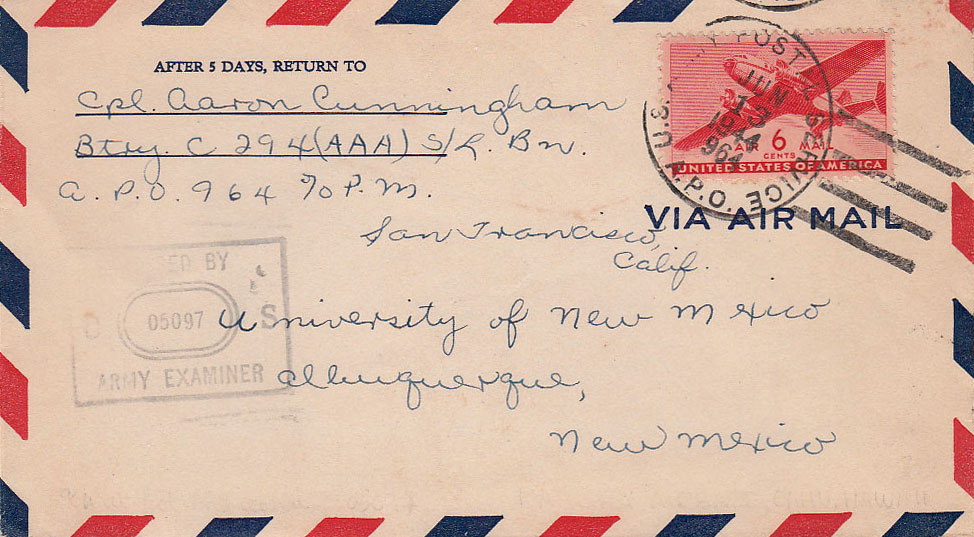 AFTER 5 DAYS, RETURN TO
Cpl. Aaron Cunningham
Btry. C 294 (AAA) S/L. Bn.
A. P. O. 964 c/o P. M.
San Francisco,
Calif.
POST SERVICE
U.S. A.P.O.
JUN
13
1944
964
AIR 6 MAIL
CENTS
UNITED STATES OF AMERICA
VIA AIR MAIL
ED BY
05097 S
ARMY EXAMINER
University of New Mexico
Albuquerque,
New Mexico